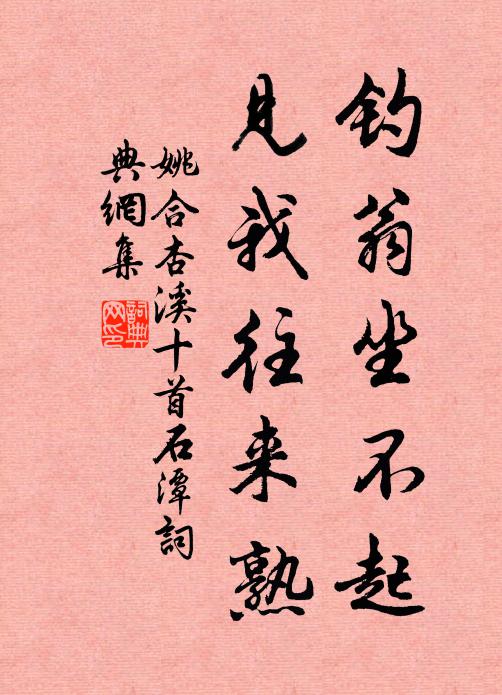 钓翁坐不起
見我往来熟
姚合杏溪十首石潭詞
典網集
詞典
网印